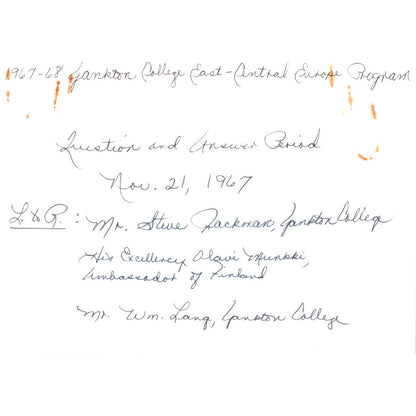 1967-68 Yankton College East-Central Europe Program
Question and Answer Period
Nov. 21, 1967
L. & R. : Mr. Steve Rackman, Yankton College
His Excellency Olavi Munkki,
Ambassador of Finland
Mr. Wm. Lang, Yankton College